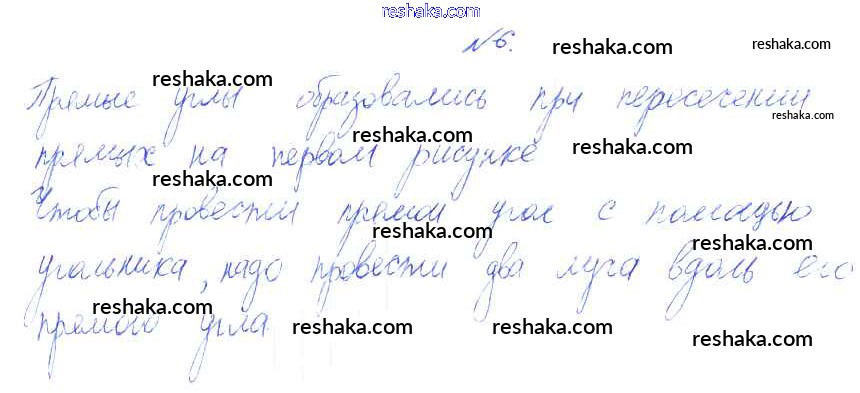 reshaka.com
№6.
reshaka.com
reshaka.com
reshaka.com
Прямые углы образовались при пересечении
reshaka.com
reshaka.com
reshaka.com
прямых на первом рисунке
reshaka.com
Чтобы провести прямой угол с помощью
reshaka.com
угольника, надо провести два луча вдоль его
reshaka.com
прямого угла
reshaka.com
reshaka.com
reshaka.com